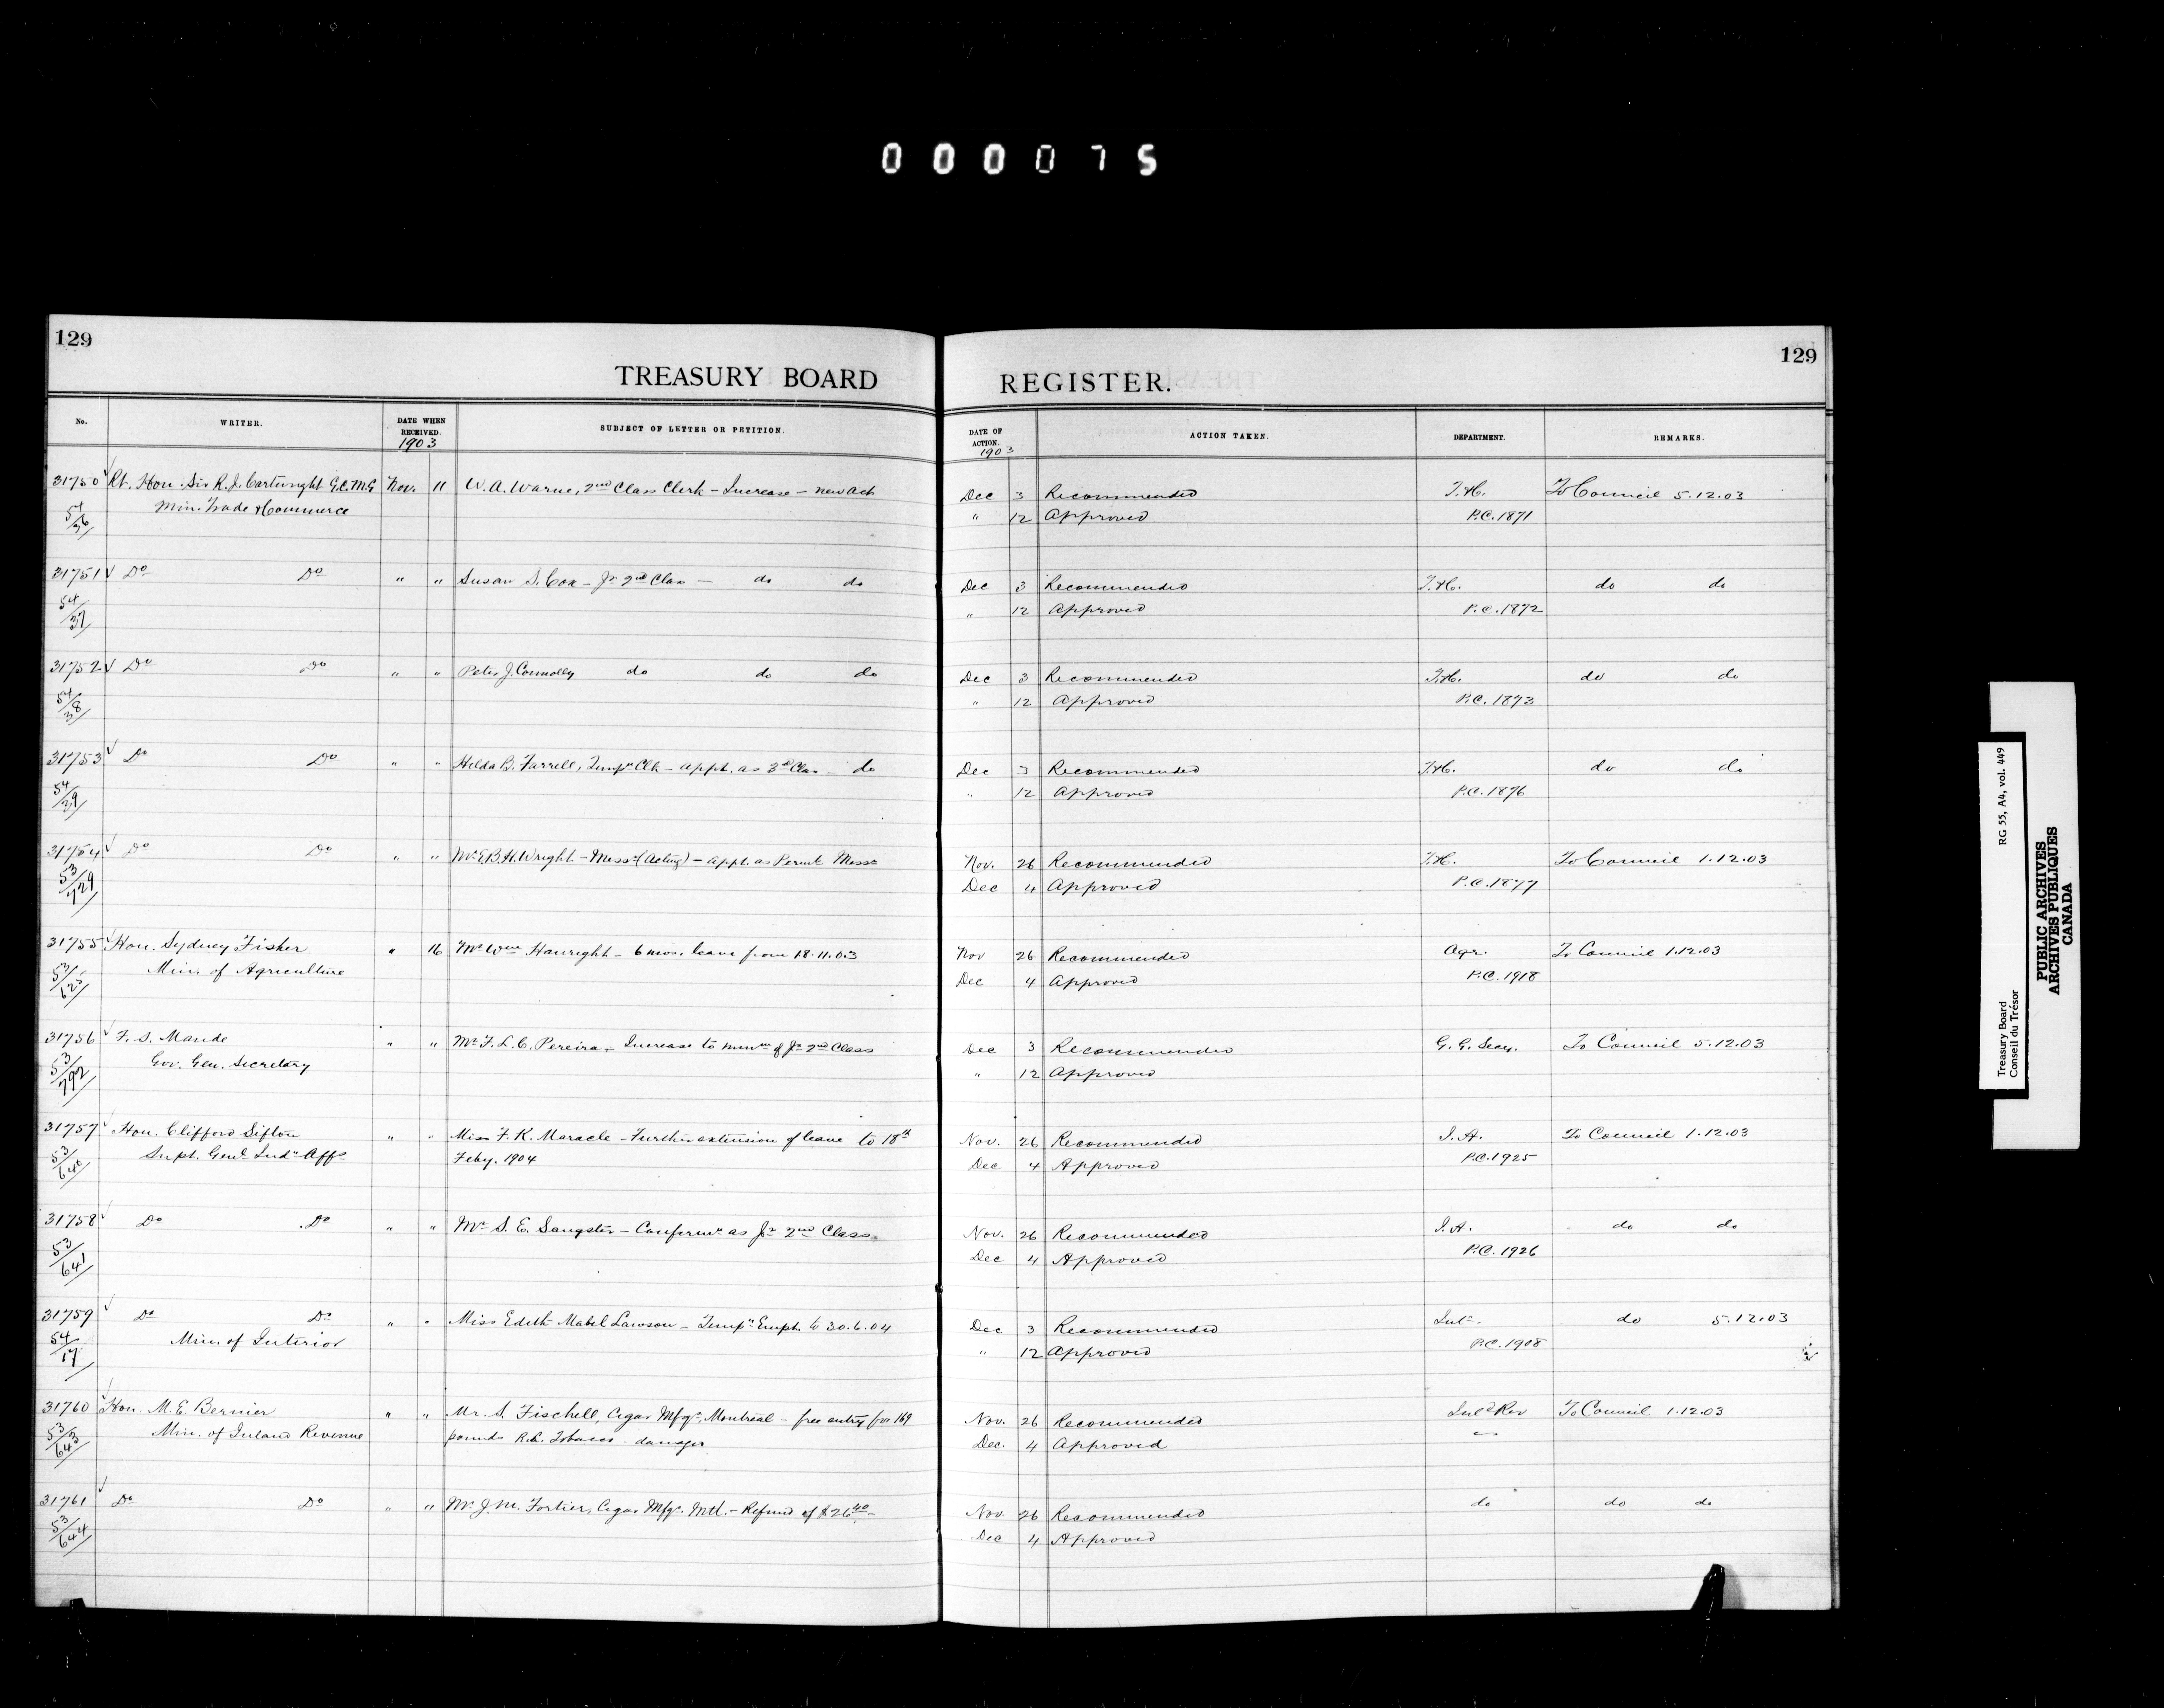 000075
129
TREASURY BOARD
No.
WRITER.
DATE WHEN RECEIVED.
1903
SUBJECT OF LETTER OR PETITION.
31750 Rt. Hon. Sir R. J. Cartwright G.C.M.G Nov. 11 W. A. Warne, 2nd Class Clerk - Increase - new Act
54/36 Min. Trade & Commerce
31751 Do Do " " Susan S. Cox - Jr 2nd Class - do do
54/37
31752 Do Do " " Peter J. Connolly do do do
54/38
31753 Do Do " " Hilda B. Farrell, Tempy Clk - appt. as 3rd Class - do
54/39
31754 Do Do " " Mr E. B. H. Wright - Messr (Acting) - appt. as Permt Messr
53/729
31755 Hon. Sydney Fisher " 16 Mr Wm Hanright - 6 mos. leave from 18.11.03
53/625 Min. of Agriculture
31756 F. S. Maude " " Mr F. L. C. Pereira - Increase to minm of Jr 2nd Class
53/792 Gov. Gen. Secretary
31757 Hon. Clifford Sifton " " Miss F. K. Maracle - Further extension of leave to 18th
53/640 Supt. Genl Indn Affs Feby. 1904
31758 Do Do " " Mr S. E. Sangster - Confirmn as Jr 2nd Class
53/641
31759 Do Do " " Miss Edith Mabel Lawson - Tempy Empt. to 30.6.04
54/17 Min. of Interior
31760 Hon. M. E. Bernier " " Mr. S. Fischell, Cigar Mfgr, Montreal - free entry for 169
53/643 Min. of Inland Revenue pounds R.L. Tobacco damages
31761 Do Do " " Mr J. M. Fortier, Cigar Mfgr. Mtl. - Refund of $26 40
53/644
129
REGISTER.
DATE OF ACTION.
1903
ACTION TAKEN.
DEPARTMENT.
REMARKS.
Dec 3 Recommended T.&C. To Council 5.12.03
" 12 Approved P.C. 1871
Dec 3 Recommended T.&C. do do
" 12 Approved P.C. 1872
Dec 3 Recommended T.&C. do do
" 12 Approved P.C. 1873
Dec 3 Recommended T.&C. do do
" 12 Approved P.C. 1876
Nov. 26 Recommended T.&C. To Council 1.12.03
Dec 4 Approved P.C. 1877
Nov 26 Recommended Agr. To Council 1.12.03
Dec 4 Approved P.C. 1918
Dec 3 Recommended G. G. Secy. To Council 5.12.03
" 12 Approved
Nov. 26 Recommended I. A. To Council 1.12.03
Dec 4 Approved P.C. 1925
Nov. 26 Recommended I. A. do do
Dec 4 Approved P.C. 1926
Dec 3 Recommended Intr. do 5.12.03
" 12 Approved P.C. 1908
Nov. 26 Recommended Inld Rev To Council 1.12.03
Dec. 4 Approved
Nov. 26 Recommended do do do
Dec 4 Approved
Treasury Board RG 55, A4, vol. 449
Conseil du Trésor
PUBLIC ARCHIVES
ARCHIVES PUBLIQUES
CANADA